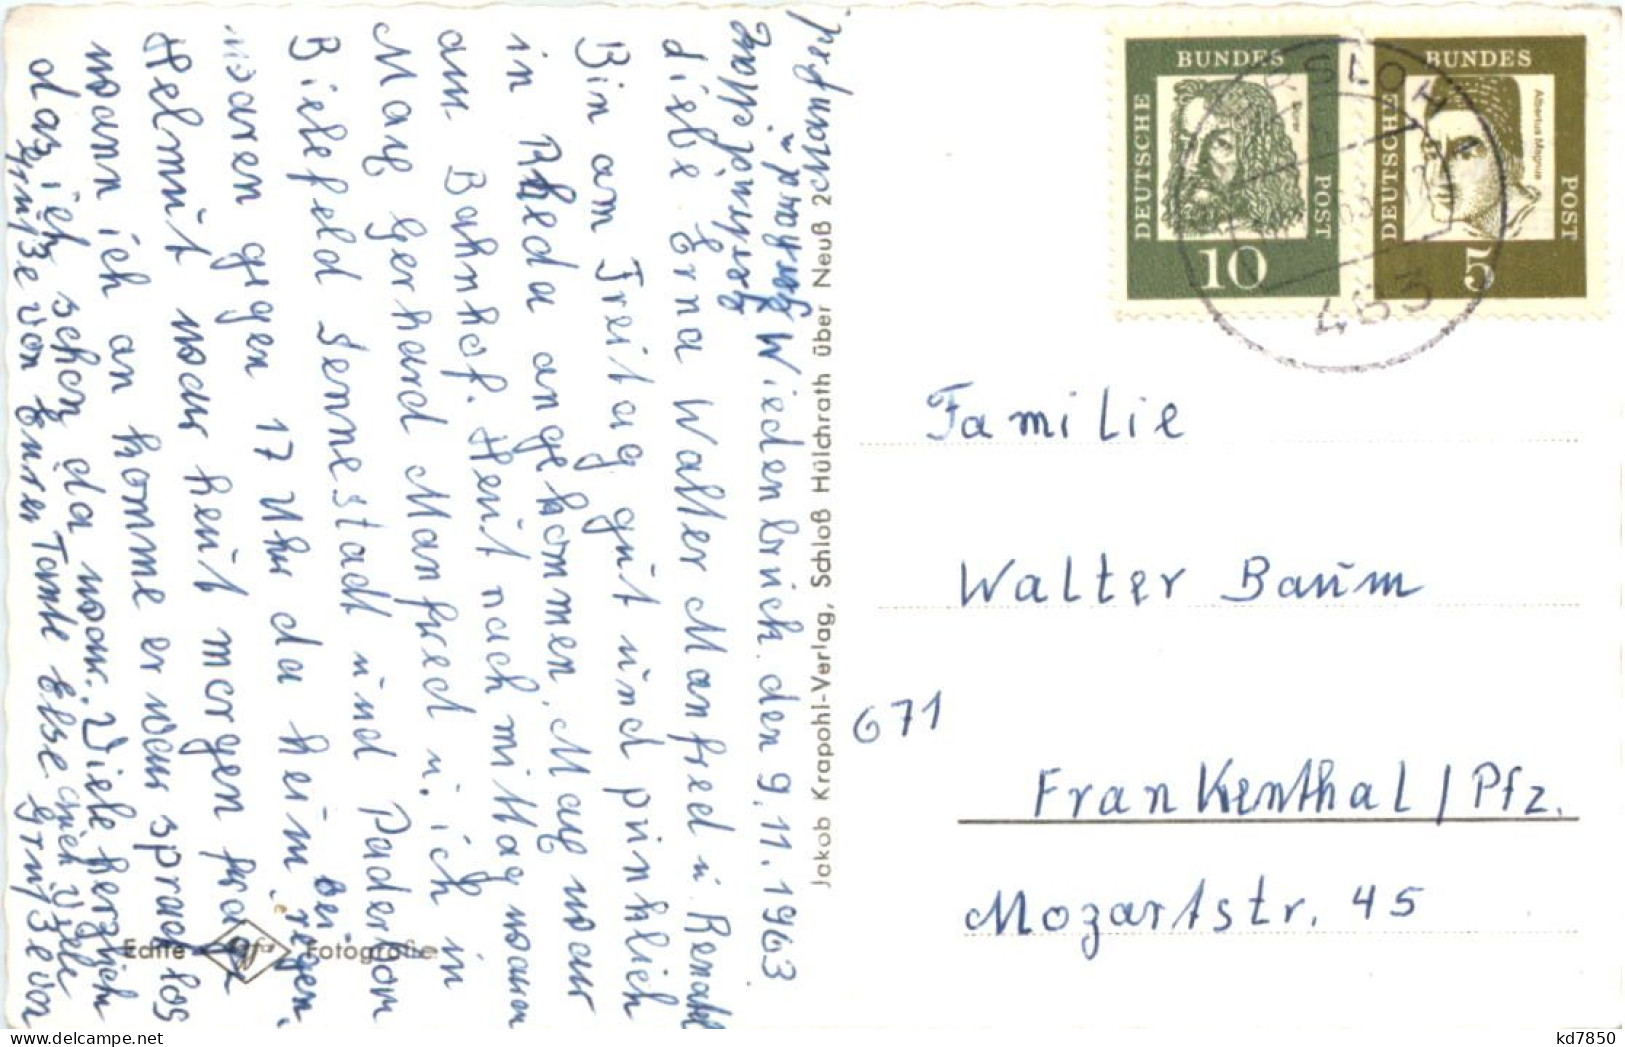 Wiedenbrück den 9.11.1963
Liebe Erna Walter Manfred u Renate
Bin am Freitag gut und pünklich
in Rheda angekommen. Marg war
am Bahnhof. Heut nachmittag waren
Marg Gerhard Manfred u. ich in
Bielefeld Sennestadt und Paderborn
waren gegen 17 Uhr da heim bei regen.
Helmut war heut morgen
wann ich an komme er war sprachlos
das ich schon da war. Viele herzlich
Grüße von Eurer Tante Else auch viele Grüße von
Gerhard
Manfred
Jakob Krapohl-Verlag, Schloß Hülchrath über Neuß 2
Echte Agfa Fotografie
DEUTSCHE BUNDESPOST
10
DEUTSCHE BUNDESPOST
Albertus Magnus
5
483
Familie
Walter Baum
671
Frankenthal / Pfz.
Mozartstr. 45
kd7850